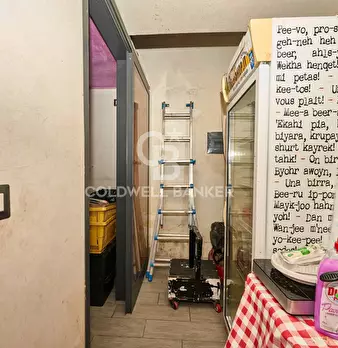 Pee-vo, pro-s
geh-neh heh
beer, ahls-
Wekha henqet!
mi petas! -
kee-tos! - Un
vous plait! -
- Mee-a beer-
'Ekahi pia,
biyara, krupay
shurt kayrek!
tahk! - On bir
Byohr awoyn,
Una birra,
Bee-ru ip-pom
Mayk-joo hahn
yoh! - Dan m
Wan-jee m'nee
yo-kee-pee!
COLDWELL BANKER